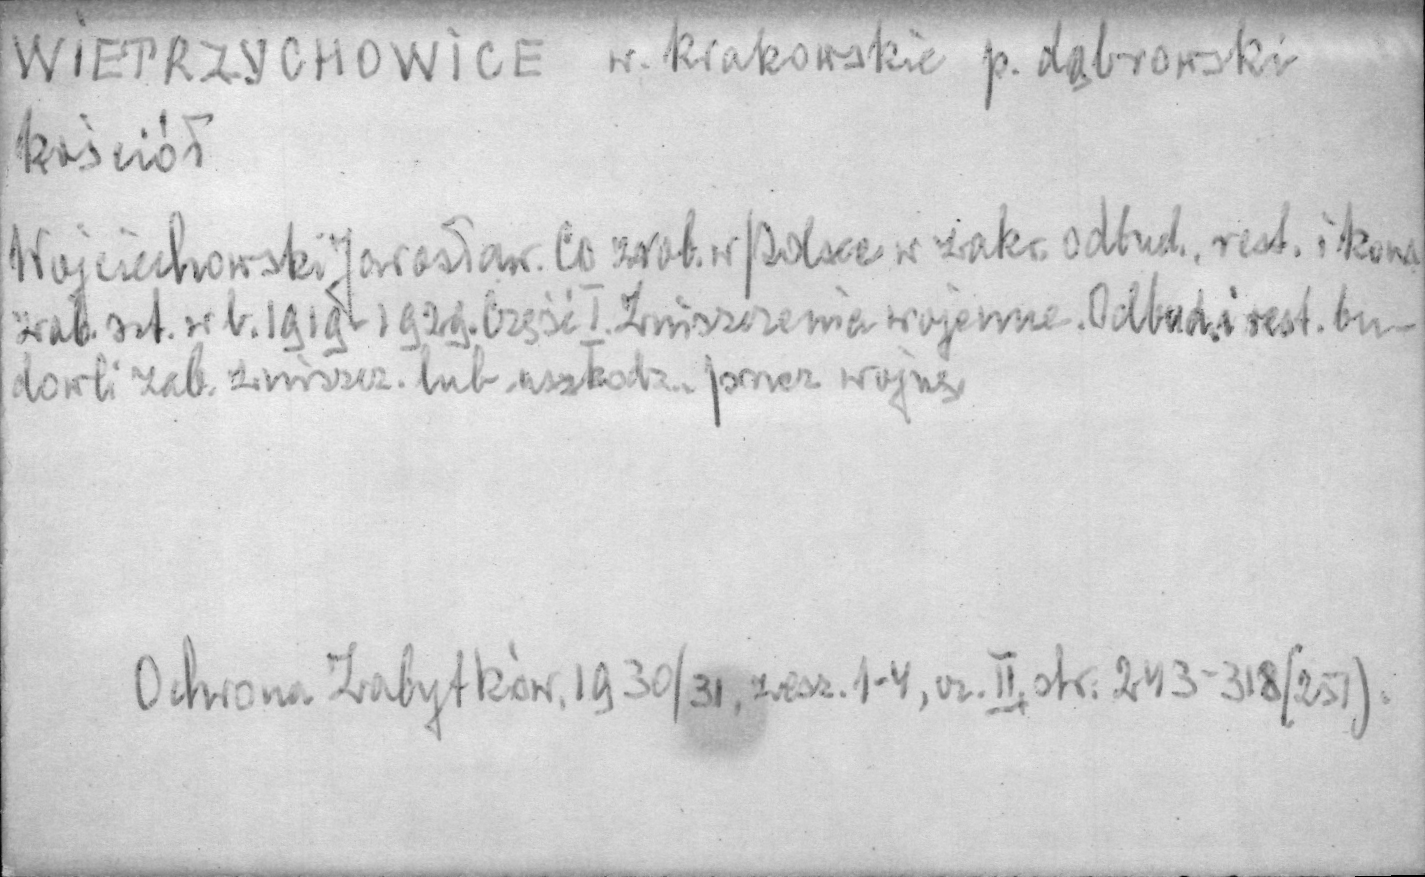 WIETRZYCHOWICE w. krakowskie p. dąbrowski
kościół
Wojciechowski Jarosław. Co zrob. w Polsce w zakr. odbud., rest. i kons.
zab. szt. w l. 1919-1929. Część I. Zniszczenia wojenne. Odbud. i rest. bu-
dowli zab. zniszcz. lub uszkodz. przez wojnę.
Ochrona Zabytków, 1930/31, zesz. 1-4, cz. II, str. 243-318(251).